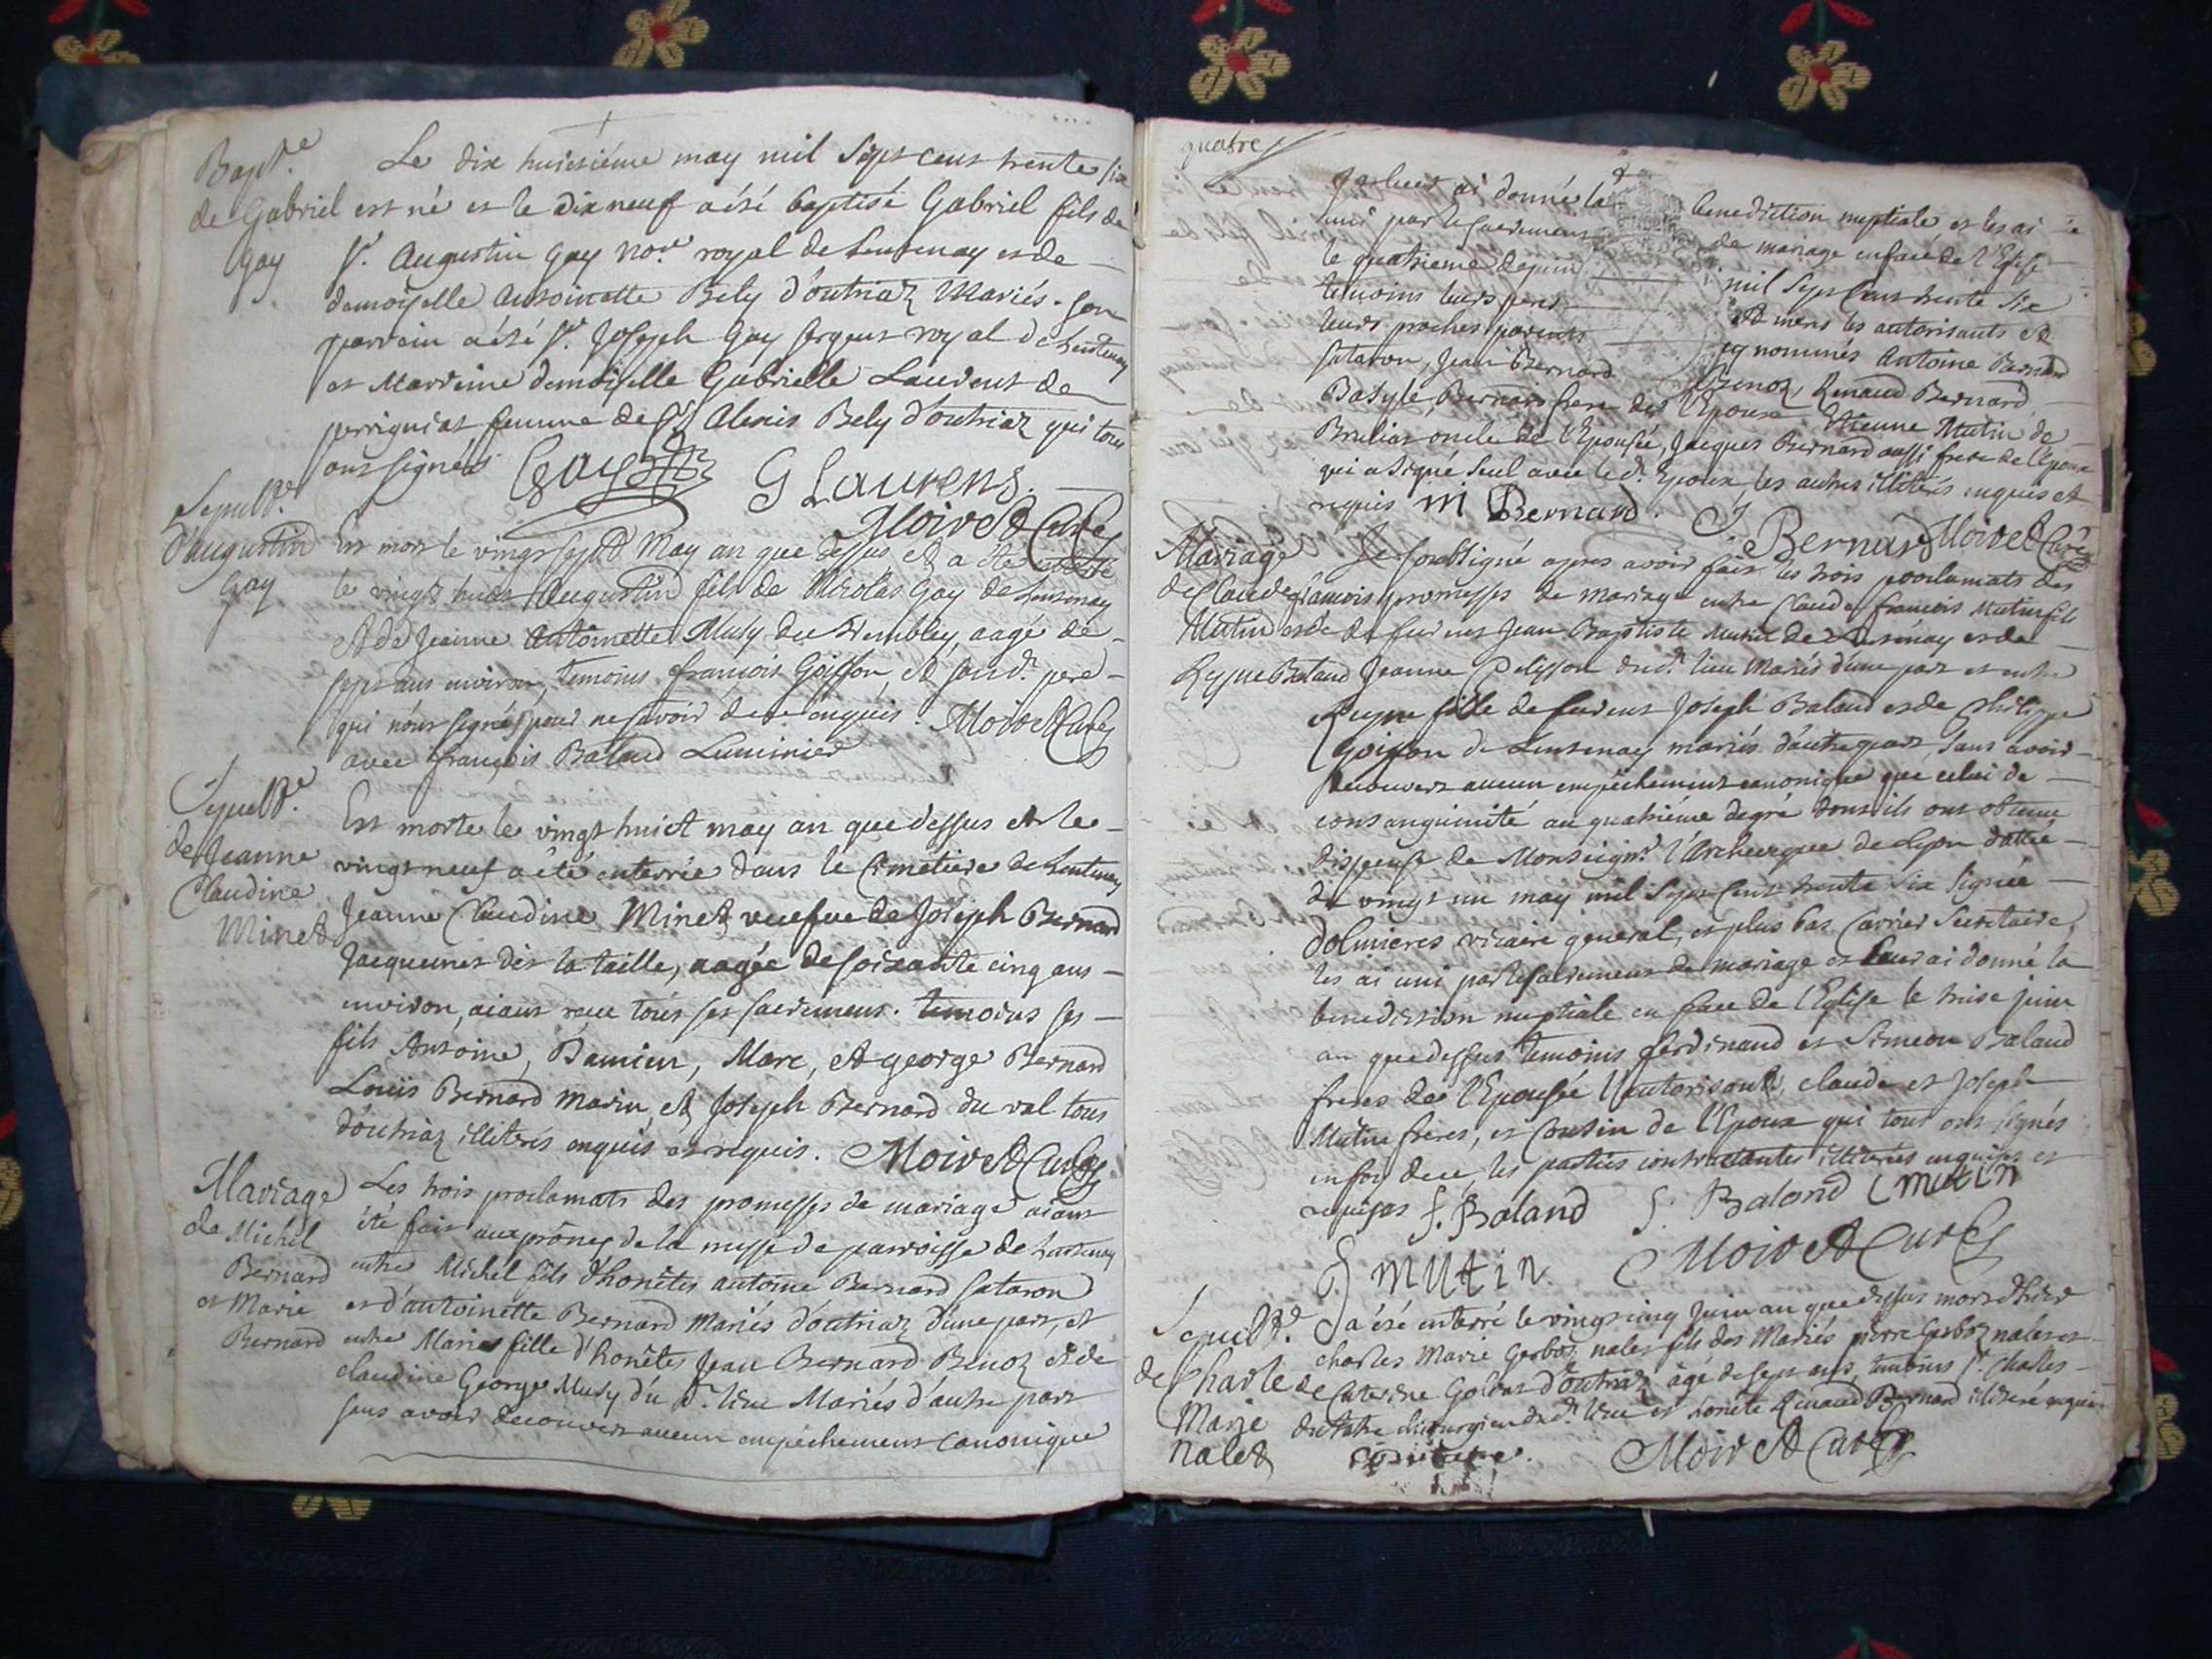 Bapt.e
de Gabriel
Gay
Le dix huictième may mil sept cent trente six
est né et le dix neuf a été baptisé Gabriel fils de
Sr. Augustin Gay nore. royal de Lentenay et de
demoiselle Antoinette Bely d'outriaz Mariés. son
parrain a été Sr. Joseph Gay sergent royal de Lentenay
et Marreine demoiselle Gabrielle Laurent de
perrigniat femme de Sr. Alexis Bely d'outriaz qui tous
ont signés Gay G Laurens.
Moiret Curé
Sepult.e
d'augustin
Gay
Est mort le vingt sept May an que dessus et a été
le vingt huit Augustin fils de Nicolas Gay de Lentenay
Et de Jeanne Antoinette Musy du Trembley, aagé de
sept ans environ, temoins françois Goiffon, et son d. pere
qui n'ont signés pour ne savoir de ce enquis. Moiret Curé
avec françois Baland Luminier
Sepult.e
de Jeanne
Claudine
Minet
Est morte le vingt huict may an que dessus et le
vingt neuf a été enterrée dans le Cimetiere de Lentenay
Jeanne Claudine Minet veufue de Joseph Bernard
Jacquemet dit la taille, aagée de soixante cinq ans
environ, aiant receu tous ses sacremens. temoins ses
fils Antoine, Damien, Marc, et george Bernard
Louis Bernard Marin et Joseph Bernard du val tous
d'outriaz illiterés enquis et requis. Moiret Curé
Mariage
de Michel
Bernard
et Marie
Bernard
Les trois proclamats des promesses de mariage aiant
été fait aux prônes de la messe de parroisse de Lentenay
entre Michel fils d'honêtes antoine Bernard sataron
et d'antoinette Bernard Mariés d'outriaz d'une part, et
entre Marie fille d'honêtes Jean Bernard Benoz et de
claudine George Musy du d. lieu Mariés d'autre part
sans avoir decouvert aucun empêchement canonique
quatre
Je leur ai donné la benediction nuptiale et les ai
uni par le sacrement de mariage en face de l'Eglise
le quatrieme de juin mil sept cent trente six
temoins leurs peres et meres les autorisants et
leurs proches parents cy nommés Antoine Bernard
sataron, Jean Bernard Benoz, Renaud Bernard
Basyle Bernard frere de l'Epoux Etienne Mutin de
Brulias oncle de l'Epousée, Jacques Bernard aussi frere de l'Epoux
qui a signé seul avec le d. Epoux, les autres illiterés enquis et
requis M Bernard. J Bernard Moiret Curé
Mariage
de Claude françois
Mutin et de
Reyne Baland
Je soubsigné apres avoir fait les trois proclamats des
promesses de mariage entre Claude françois Mutin fils
de furent Jean Baptiste Mutin de Lentenay et de
Jeanne Pelysson dud. lieu Mariés d'une part et entre
Reyne fille de furent Joseph Baland et de Philippe
Goiffon de Lentenay mariés d'autre part, sans avoir
decouvert aucun empêchement canonique que celui de
consanguinité au quatriéme degré dont ils ont obtenu
dispense de Monseignr. l'Archeveque de Lyon dattée
du vingt un may mil sept cent trente six signée
dolmieres vicaire général, et plus bas Carrier Secretaire,
les ai uni par le sacrement de mariage et leur ai donné la
benediction nuptiale en face de l'Eglise le treise juin
an que dessus temoins ferdinand et Simeon Baland
freres de l'Epousée l'autorisants, claude et Joseph
Mutin freres, et Cousin de l'Epoux qui tous ont signés
en foy de ce, les parties contractantes illiterées enquises et
requises f. Baland S. Baland C mutin
J mutin Moiret Curé
Sepult.e
de Charle
Marie
Nalet
a été enterré le vingt cinq juin an que dessus mort d'hier
charles Marie Gerboz nalet fils des Mariés pierre Gerboz nalet et
de Caterine d'outriaz âgé de sept ans, temoins Sr. Charles
chirurgien dud. lieu et honête Renaud Bernard illiteré enquis
Moiret Curé